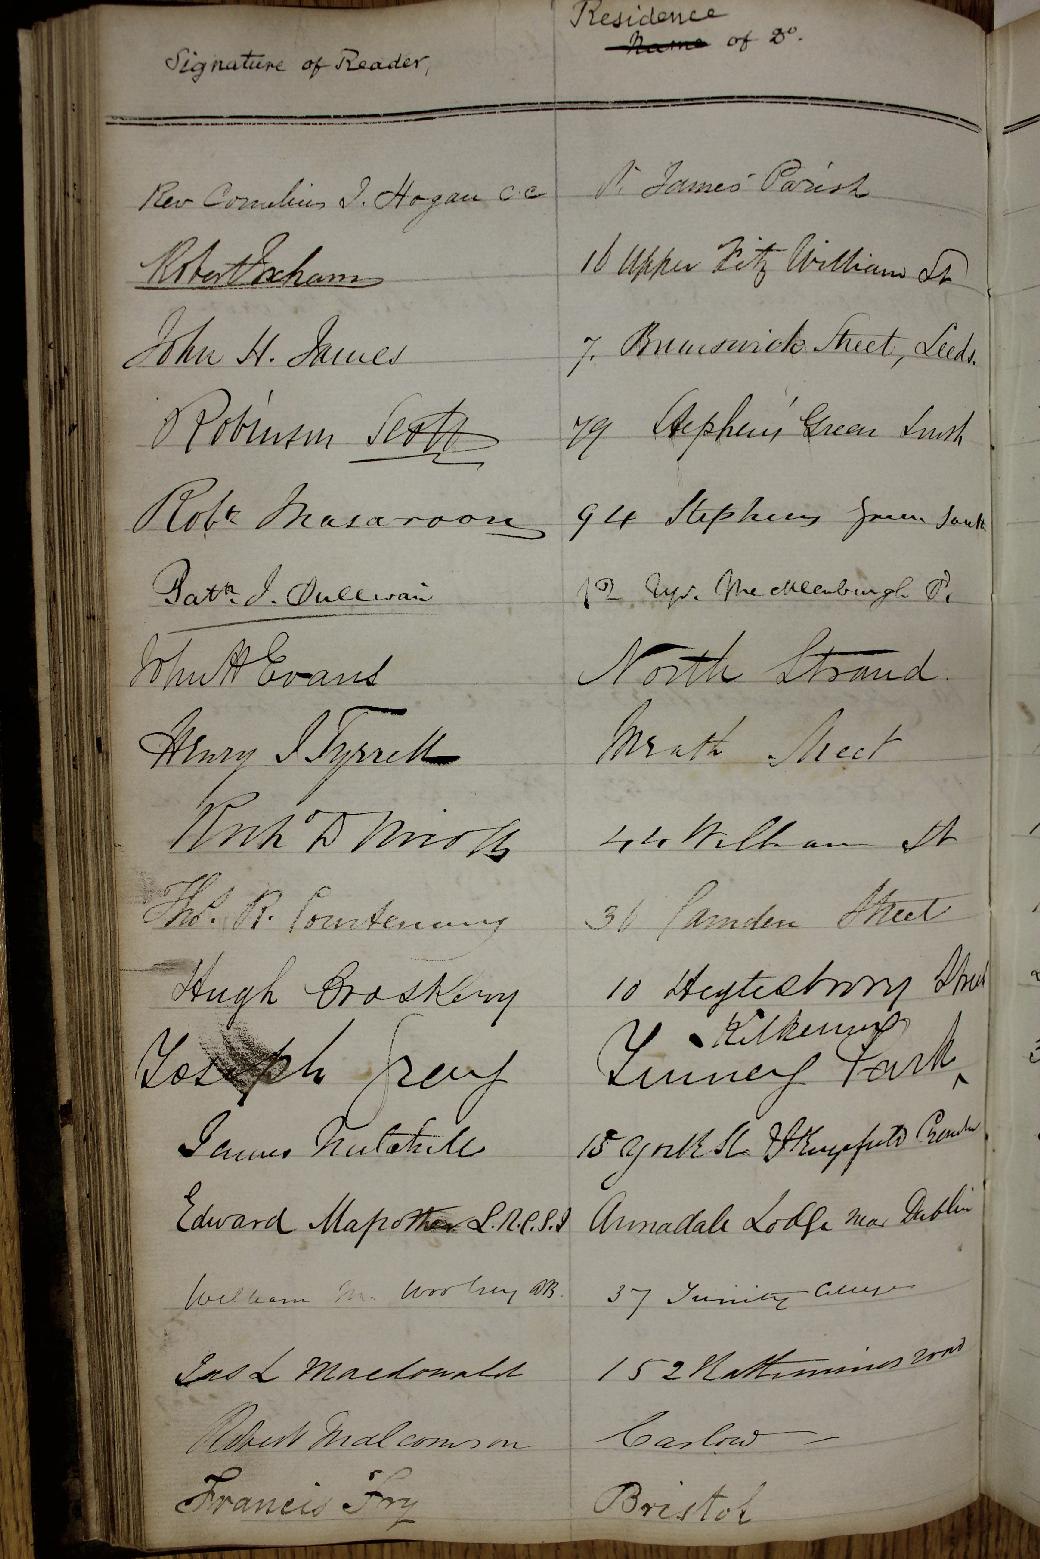 Residence
Signature of Reader, Name of Do.
Rev Cornelius I. Hogan CC St. James' Parish
Robert Ixham 16 Upper Fitz William St
John H. James 7. Brunswick Street, Leeds.
Robinson Scott 79 Stephens' Green South
Robt. Macaroon 94 Stephens Green South
Patk. J. Sullivan 12 Upr. Mecklenburgh St.
John H Evans North Strand.
Henry J Tyrrell Meath Street
Richd D 44 William St
Thos. R. Courtenay 36 Camden Street
Hugh Croskery 10 Heytesbury Street
Kilkenny
Joseph Grey Finney Park
James 15 York St &
Edward Mapother L.R.C.S.I Annadale Lodge near Dublin
William M. AB. 37 Trinity College
Jas L Macdonald 152 Rathmines road
Robert Malcomson Carlow
Francis Fry Bristol